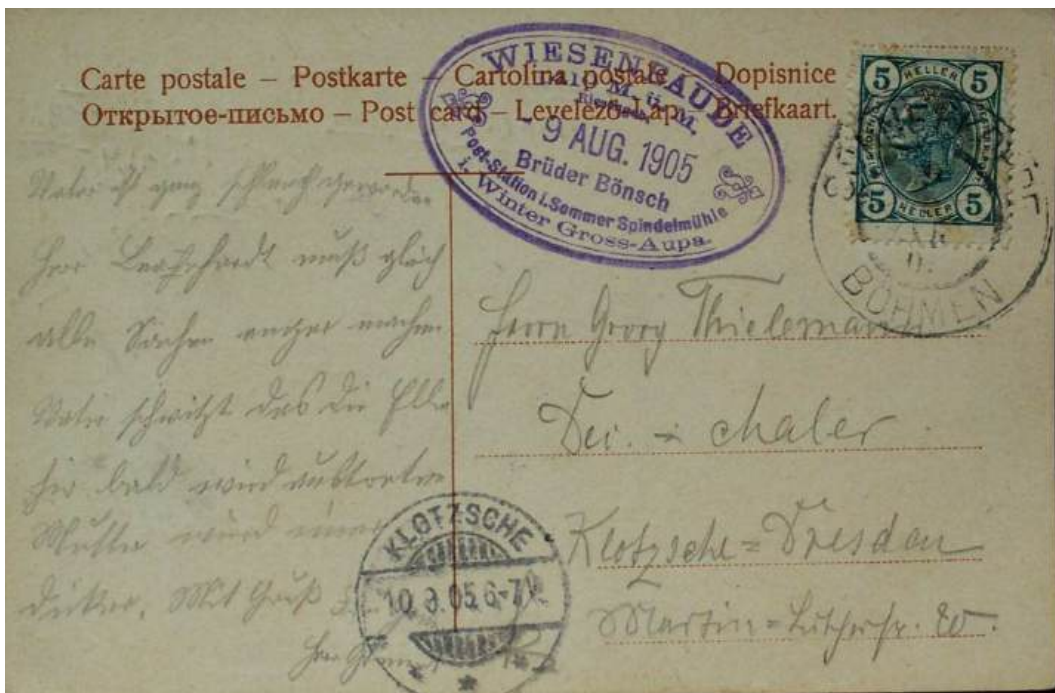 Carte postale – Postkarte – Cartolina postale – Dopisnice
Открытое-письмо – Post card – Levelező-Lap – Briefkaart.
WIESENBAUDE
1410 M. ü. M.
Riesengeb.
- 9 AUG. 1905
Brüder Bönsch
Post-Station i. Sommer Spindelmühle
i. Winter Gross-Aupa.
5 HELLER 5
5 HELLER 5
BÖHMEN
Vater ist ganz schlecht geworden
Herr muß gleich
alle Sachen enger machen
Vater schwitzt das die Elbe
hir bald wird austreten
Mutter wird immer
dicker. Mit Gruß
Herrn Georg Thielemann
maler
Klotzsche=Dresden
Martin=Lutherstr.
KLOTZSCHE
10.8.05.6-7